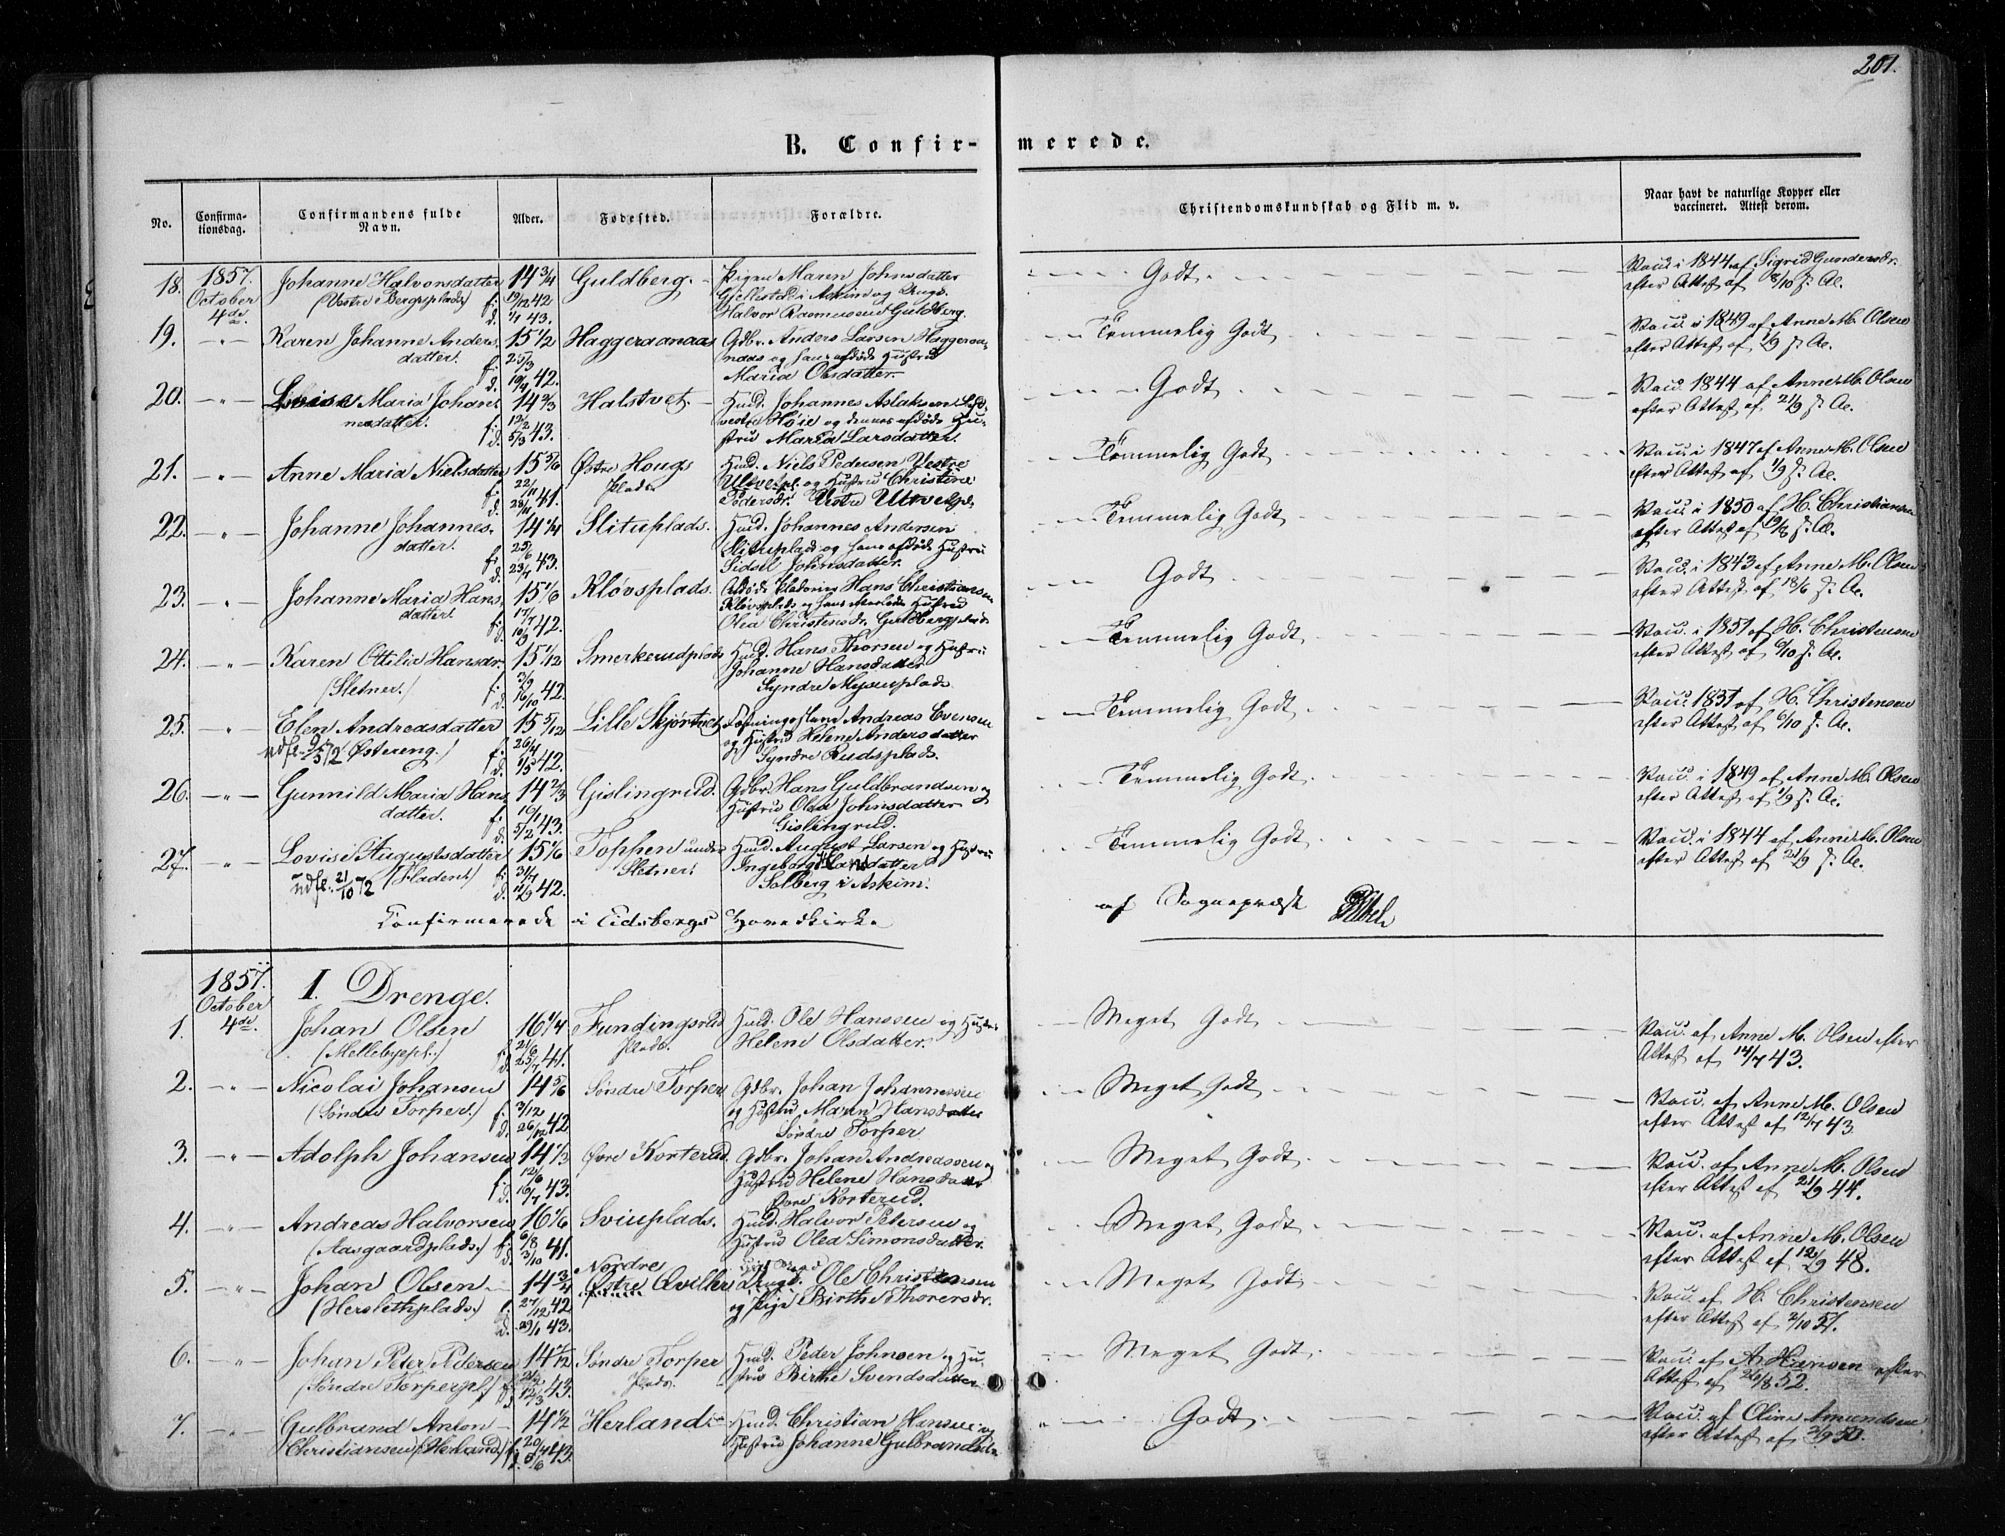 201.
B. Confir- merede.
No. Confirma-tionsdag. Confirmandens fulde Navn. Alder. Fødested. Forældre. Christendomskundskab og Flid m. v. Naar havt de naturlige Kopper eller vaccineret. Attest derom.
18. 1857. October 4de. Johanne Halvorsdatter 14 3/4 Guldberg. Pigen Maren Johnsdatter Godt. Vacc. i 1844 af Sigrid Gundersdr.
(Vestre Bergsplads) f. 19/12 42 Gjellestad i Askim og Ungk. efter Attest af 3/10 s. A.
d. 1/1 43. Halvor Rasmussen Guldberg.
19. -"- Karen Johanne Anders- 15 1/2 Haggeraanaas Gdbr. Anders Larsen Haggeraa- Temmelig Godt Vacc. i 1849 af Anne M. Olsen
datter. f. 25/3 naas og hans afdøde Hustru efter Attest af 1/9 s. A.
d. 10/4 42. Maria Olsdatter.
20. -"- Lovise Maria Johan- 14 2/3 Halstvet. Husd. Johannes Aslaksen Godt Vacc. 1844 af Anne M. Olsen
nesdatter. f. 13/2 vestre Høie og dennes afdøde Hu- efter Attest af 21/9 s. A.
d. 5/3 43. stru Maria Larsdatter.
21. -"- Anne Maria Nielsdatter 15 5/6 Østre Hougs Husd. Niels Pedersen Vestre Temmelig Godt Vacc. i 1847 af Anne M. Olsen
f. 22/11 Plads. Ulvetpl. og Hustru Christine efter Attest af 1/9 s. A.
d. 28/11 41. Pedersdr. Vestre Ulvetpl.
22. -"- Johanne Johannes- 14 1/4 Slituplads. Husd. Johannes Andersen Temmelig Godt Vacc. i 1850 af H. Christiansen
datter. f. 25/6 Slituplads og hans afdøde Hustru efter Attest af 19/6 s. A.
d. 23/7 43. Sidsel Johnsdatter.
23. -"- Johanne Maria Hans- 15 1/6 Kløvsplads. Afdøde Hans Christiansen Godt Vacc. i 1843 af Anne M. Olsen
datter. f. 17/7 Kløvsplads og hans efterlevte Hustru efter Attest af 18/6 s. A.
d. 10/9 42. Olea Christensdr. Guldbergplads
24. -"- Karen Ottilie Hansdr. 15 1/12 Smerkerudplads Husd. Hans Thorsen og Hustru Temmelig Godt Vacc. i 1851 af H. Christensen
(Sletner.) f. 3/9 Johanne Hansdatter efter Attest af 6/10 s. A.
d. 16/10 42. Syndre Mysenplads
25. -"- Elen Andreasdatter 15 5/12 Lille Skjørtvet Andreas Evensen Temmelig Godt Vacc. 1851 af H. Christensen
udfl. 9/5 72 Østereng.) f. 26/4 og Hustru Helene Andersdatter efter Attest af 6/10 s. A.
d. 1/5 42. Syndre Rudsplads.
26. -"- Gunnild Maria Hans- 14 2/3 Gislingrud. Gdbr. Hans Guldbrandsen og Temmelig Godt. Vacc. i 1849 af Anne M. Olsen
datter. f. 16/1 Hustru Olea Johnsdatter efter Attest af 1/9 s. A.
d. 5/2 43. Gislingrud.
27. -"- Lovise Augustsdatter 15 1/6 Toppen under Husd. August Larsen og Hustru Temmelig Godt Vacc. i 1844 af Anne M. Olsen
udfl. 21/10 72 (Fladent) f. 31/7 Sletner. Ingeborg Hansdatter efter Attest af 21/9 s. A.
d. 11/9 42. Solberg i Askim.
Confirmerede i Eidsbergs Hovedkirke af Sognepræst
1857. October 4de. I. Drenge.
1. Johan Olsen 16 1/4 Fundingsrud Husd. Ole Hanssen og Hustru Meget Godt Vacc. af Anne M. Olsen efter
(Mellebyspl.) f. 21/6 d. 25/7 41. Plads. Helene Olsdatter. Attest af 14/7 43.
2. -"- Nicolai Johansen 14 5/6 Søndre Torper Gdbr. Johan Johannessen Meget Godt Vacc. af Anne M. Olsen
(Søndre Torper.) f. 3/12 og Hustru Maren Hansdatter efter Attest af 12/7 43
d. 26/12 42. Søndre Torper
3. -"- Adolph Johansen 14 1/3 Øvre Korterud. Gdbr. Johan Andreassen og Meget Godt. Vacc. af Anne M. Olsen
f. 12/6 Hustru Helene Hansdatter efter Attest af 21/9 44.
d. 16/7 43. Øvre Korterud.
4. -"- Andreas Halvorsen 16 1/6 Sviuplads. Husd. Halvor Petersen og Meget Godt. Vacc. af Anne M. Olsen
(Aasgaardplads.) f. 6/8 d. 3/10 41. Hustru Olea Simonsdatter. efter Attest af 12/9 48.
Nordre
5. -"- Johan Olsen 14 3/4 Østre Qviller Ungk. Ole Christensen Meget Godt Vacc. af H. Christensen
(Herslethplads.) f. 27/12 42 og Pige Birthe Thorersdr. efter Attest af 2/10 51.
d. 29/1 43.
6. -"- Johan Peter Pedersen 14 7/12 Søndre Torper Husd. Peder Johnsen og Hu- Meget Godt. Vacc. af A. Hansen efter
(Søndre Torperpl.) d. 12/3 43. Plads. stru Birthe Svendsdatter Attest af 26/8 52.
7. -"- Gulbrand Anton 14 1/2 Herland Husd. Christian Hansen og Godt. Vacc. af Oline Amundsen
Christiansen (Herland) f. 20/4 d. 5/6 43. Hustru Johanne Gulbrandsdr. efter Attest af 2/9 50.